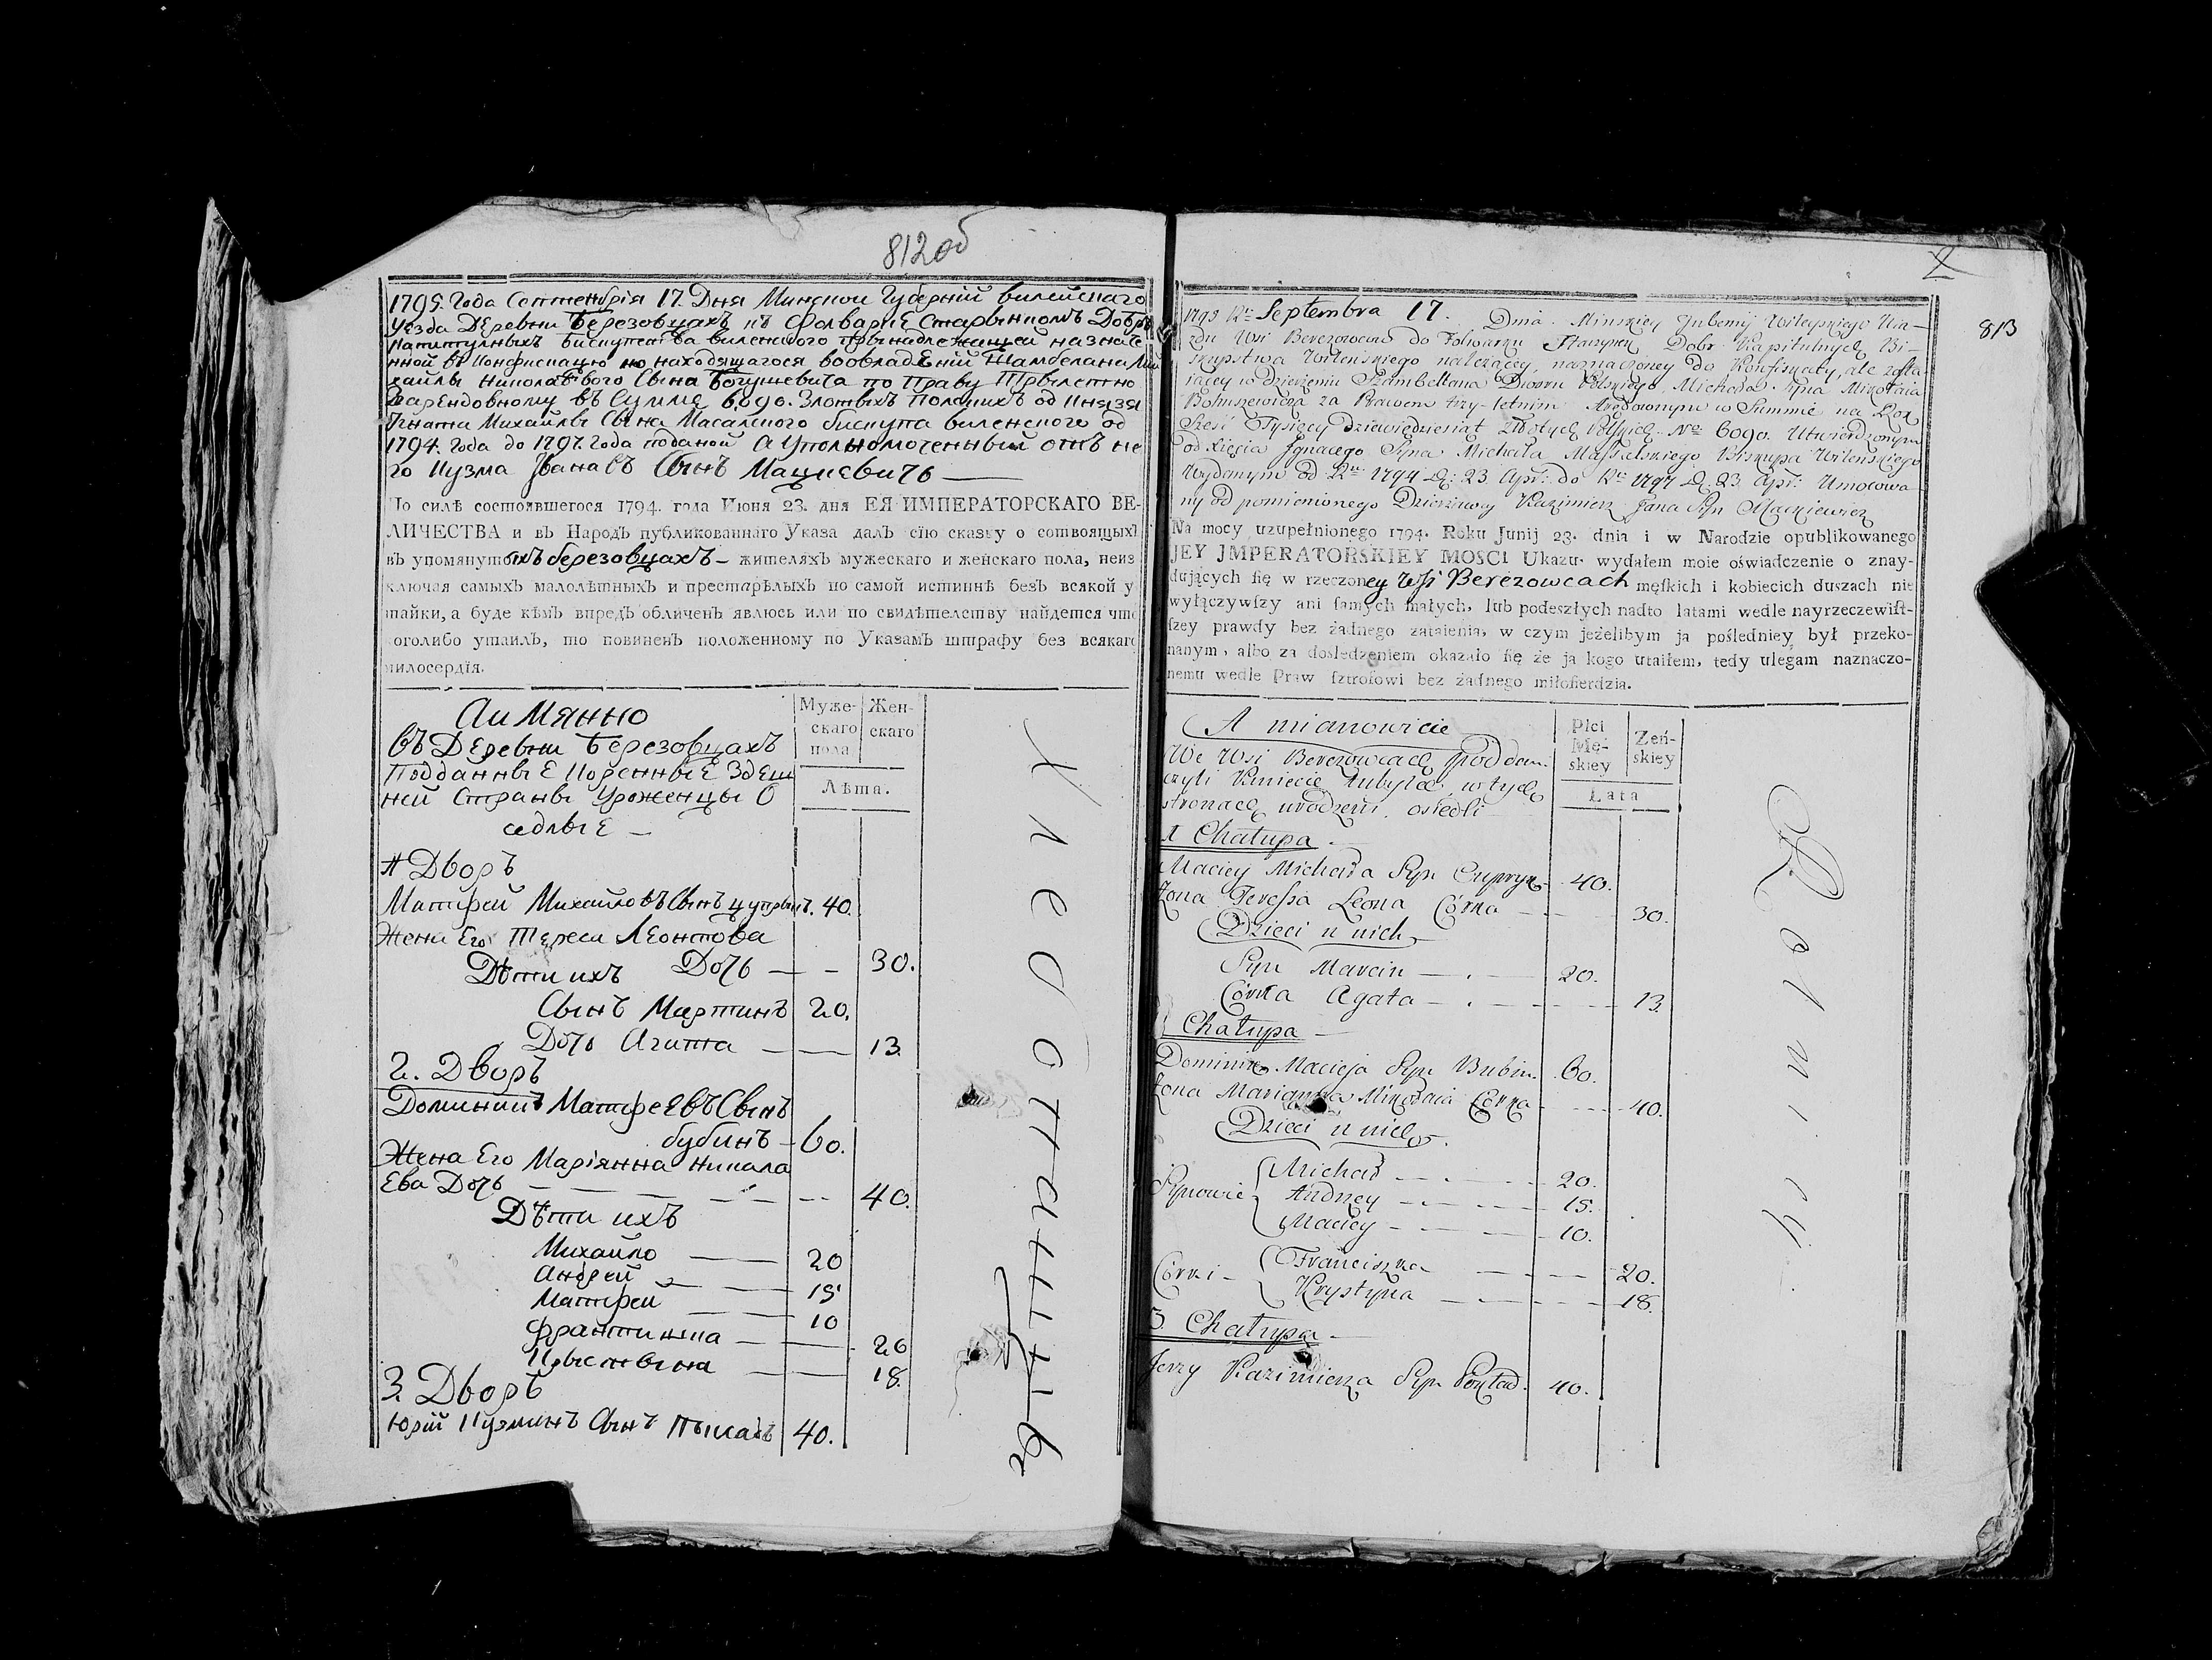 812 об
1795. Года Сентембрія 17. Дня Минской Губерній вилейскаго
уезда Деревни Березовцахъ къ Фолварке Старынкомъ Добръ
Капитулныхъ бискупства виленского прынадлежащей назначе
нной въ Конфискацію но находящагося вовладеній Шамбеляна Ми
хайлы Николаевого Сына Богушевича по Праву Трылетно
Марендовному въ Сумме 6,090. Злотыхъ Полскихъ од Князя
Игнати Михайлы Сына Масалского бискупа виленского од
1794. Года до 1797. Года поданой а Уполномоченный отъ не
го Кузма Иванавъ Сынъ Мацкевичъ
По силѣ состоявшегося 1794. года Июня 23. дня ЕЯ ИМПЕРАТОРСКАГО ВЕ-
ЛИЧЕСТВА и въ Народъ публикованнаго Указа далъ сїю сказку о сотвоящыхъ
въ упомянутыхъ березовцахъ – жителяхъ мужескаго и женскаго пола, неиз
ключая самыхъ малолѣтныхъ и престарѣлыхъ по самой истиннѣ безъ всякой у
тайки, а буде кѣмъ впредъ обличенъ явлюсь или по свидѣтелству найдется что
коголибо утаилъ, то повиненъ положенному по Указамъ штрафу без всякаго
милосердїя.
Аимянно
въ Деревни Березовцахъ
Подданные Коренные Здеш
ней Страны Уроженцы О
седлые –
Муже-
скаго
пола
Жен-
скаго
Лѣта.
1 Дворъ
Матфей Михайловъ Сынъ цупрынъ. 40.
Жена Его Тереса Леонтова
Дочь – – 30.
Дѣти ихъ
Сынъ Мартинъ 20.
Дочь Агата — 13.
2. Дворъ
Доминикъ Матфеевъ Сынъ
бубинъ – 60.
Жена Его Маріянна Никала
Ева Дочь 40.
Дѣти ихъ
Михайло — 20
Андрей — 15
Матфей — 10
Франтишка — 20
Крыстына — 18.
3. Дворъ
Юрій Кузминъ Сынъ 40.
813
1795 Ru Septembra 17. Dnia. Minskiey Gubernij Wileyskiego Uia-
zdu Wsi Berezowcow do Folwarku Starynek Dobr Kapitulnych Bi-
skupstwa Wilenskiego należącey, naznaczoney do Konfiskaty, ale zosta
iącey w dzierżeniu Szambellana Dworu Polskiego Michała Syna Mikołaia
Bohuszewicza za Prawem trzy-letnim Arędownym w Summie na Rok
Sześć Tysięcy Dziewiędziesiąt Złotych Polskich No 6090. Utwierdzonym
od Xięcia Ignacego Syna Michała Massalskiego Biskupa Wileńskiego
Wydanym od Ru 1794 D: 23 Apr: do Ru 1797 D. 23 Apr: Umocowa
ny od pomienionego Dzierżawcy Kazimierz Jana Syn Mackiewicz
Na mocy uzupełnionego 1794. Roku Junij 23. dnia i w Narodzie opublikowanego
JEY JMPERATORSKIEY MOSCI Ukazu. wydałem moie oświadczenie o znay-
duiących ſię w rzeczoney Wsi Berezowcach męſkich i kobiecich duszach nie
wyłączywſzy ani ſamych małych, lub podeszłych nadto latami wedle nayrzeczewiſt-
ſzey prawdy bez żadnego zataienia, w czym jeżelibym ja pośledniey był przeko-
nanym, albo za dośledzeniem okazało ſię że ja kogo utaiłem, tedy ulegam naznaczo-
nemu wedle Praw ſztrofowi bez żadnego miłoſierdzia.
A mianowicie
We Wsi Berezowcach poddani
czyli Kmiecie w tych
stronach urodzeni. osiedli
Płci
Mę-
skiey
Żeń-
skiey
Lata
1 Chałupa.
Maciey Michała Syn Cupryn 40.
Żona Teressa Leona Córka 30.
Dzieci u nich
Syn Marcin 20.
Córka Agata 13.
Chałupa
Dominik Macieja Syn Bubin. 60.
Żona Marianna Mikołaia Córka 40.
Dzieci u nich.
Synowie
Michał 20.
Andrzey 15.
Maciey 10.
Córki
Franciszka 20.
Krystyna 18.
3. Chałupa
Jerzy Kazimierza Syn 40.